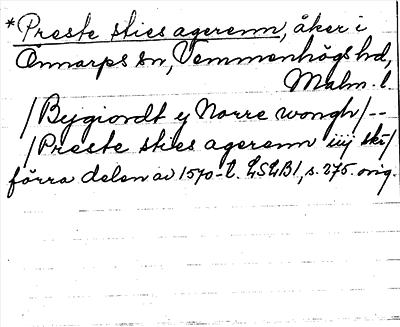 *Preste sties agerenn, åker i
Önnarps sn, Vemmenhögs hd,
Malm. l.
/Bygiordt ij Norre wongh/--
/Preste sties agerenn iiij skr/
förra delen av 1570-t. LSLB1, s. 275. orig.